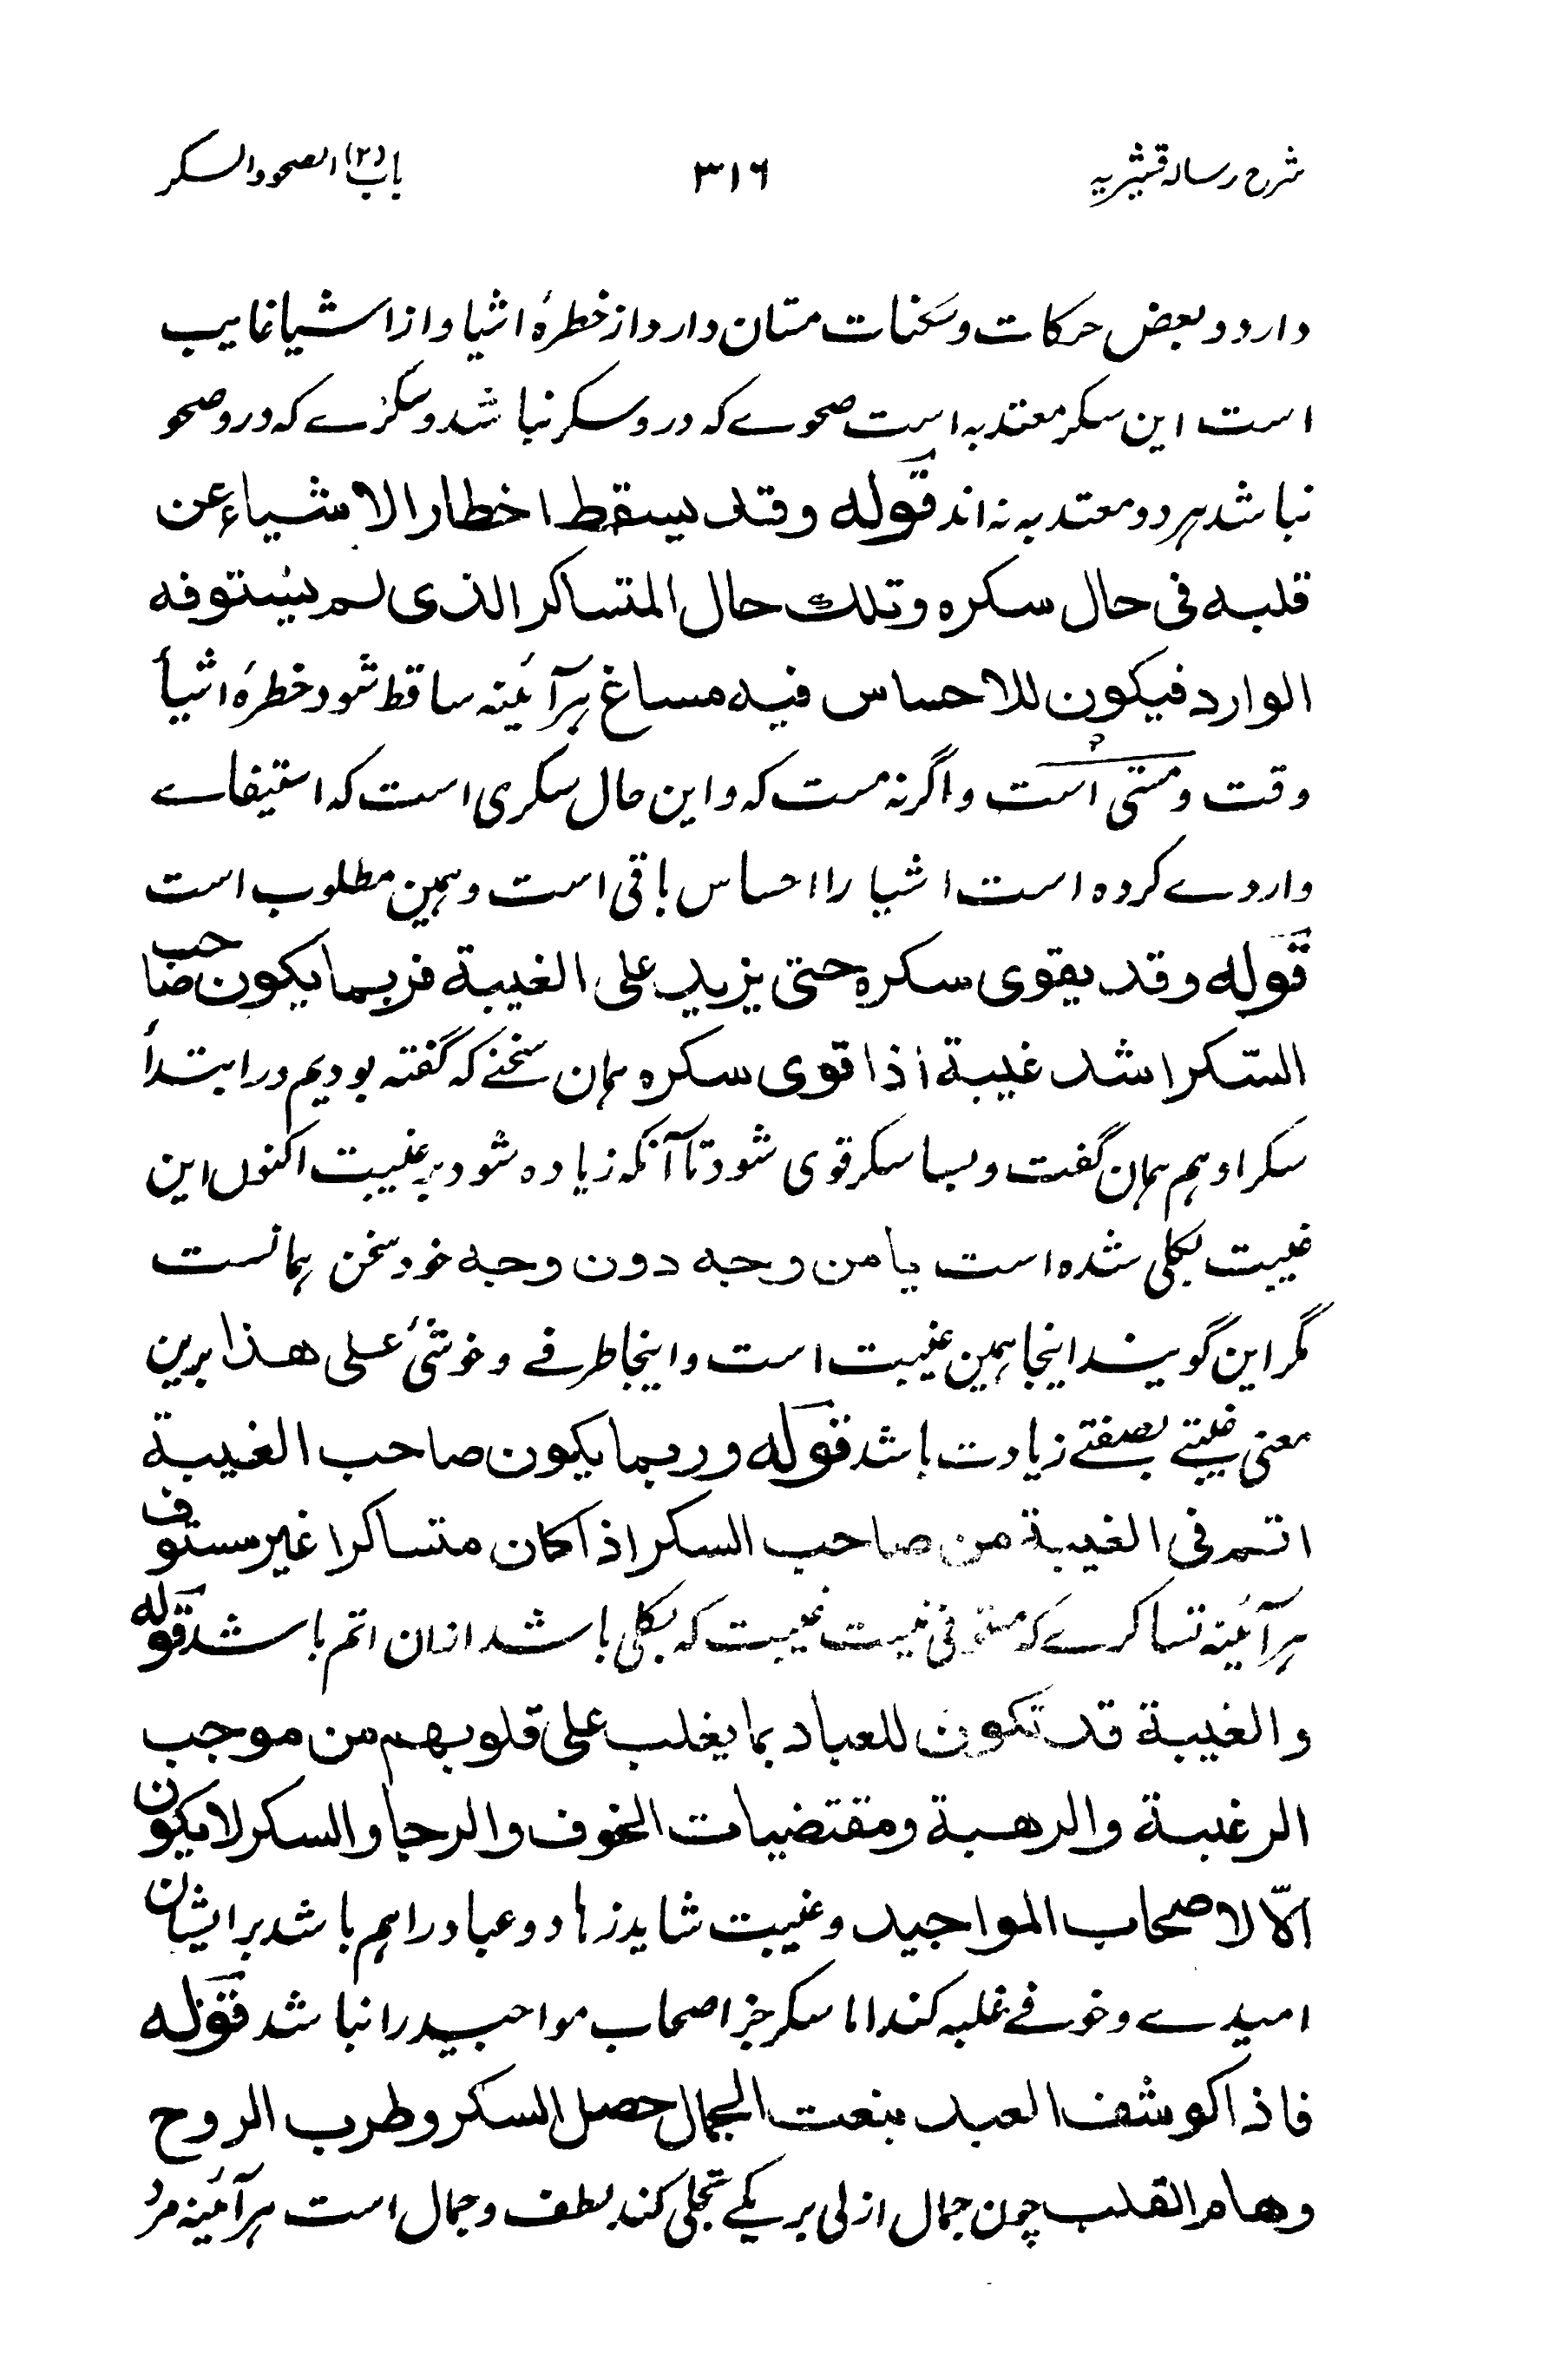 شرح رسالہ قشیریہ ۳۱۶ باب (۲) الصحو والسکر
دارد و بعض حرکات و سکنات مستان دارد از خطرۂ اشیا و از اشیا غایب
است این سکر معتد به است صحوے که درو سکر نباشد و سکرے که درو صحو
نباشد ہر دو معتد به نه اند قوله وقد یسقط اخطار الاشیاء عن
قلبه فی حال سکره وتلك حال المتساکر الذی لم یستوفه
الوارد فیکون للاحساس فیه مساغ ہرآئینه ساقط شود خطرۂ اشیأ
وقت و مستی است و اگرنه مست که و این حال سکری است که استیفاے
واردے کرده است اشیا را احساس باقی است و ہمین مطلوب است
قوله وقد یقوی سکره حتی یزید علی الغیبة فربما یکون صاحب
السّکر اشد غیبة اذا قوی سکره ہمان سخنے که گفته بودیم در ابتدأ
سکر او ہم ہمان گفت و بسا سکر قوی شود تا آنکه زیاده شود بر غیبت اکنوں این
غیبت بکلی شده است یا من وجه دون وجه خود سخن ہمانست
مگر این گویند اینجا ہمین غیبت است و اینجا طرفے و خوشیٔ علی هذا برین
معنی غیبتے بصفتے زیادت باشد قوله وربما یکون صاحب الغیبة
اتم فی الغیبة من صاحب السکر اذا کان متساکرا غیر مستوف
ہرآئینه تساکرے که مستوفی نیست غیبت که بکلی باشد ازان اتم باشد قوله
والغیبة قد تکون للعباد بما یغلب علی قلوبهم من موجب
الرغبة والرهبة ومقتضیات الخوف والرجا والسکر لا یکون
الّا لاصحاب المواجید و غیبت شاید زہاد و عباد را ہم باشد بر ایشان
امیدے و خوفے غلبه کند اما سکر جز اصحاب مواجید را نباشد قوله
فاذا کوشف العبد بنعت الجمال حصل السکر وطرب الروح
وهام القلب چون جمال ازلی بر یکے تجلی کند بلطف و جمال است ہرآئینه مرد